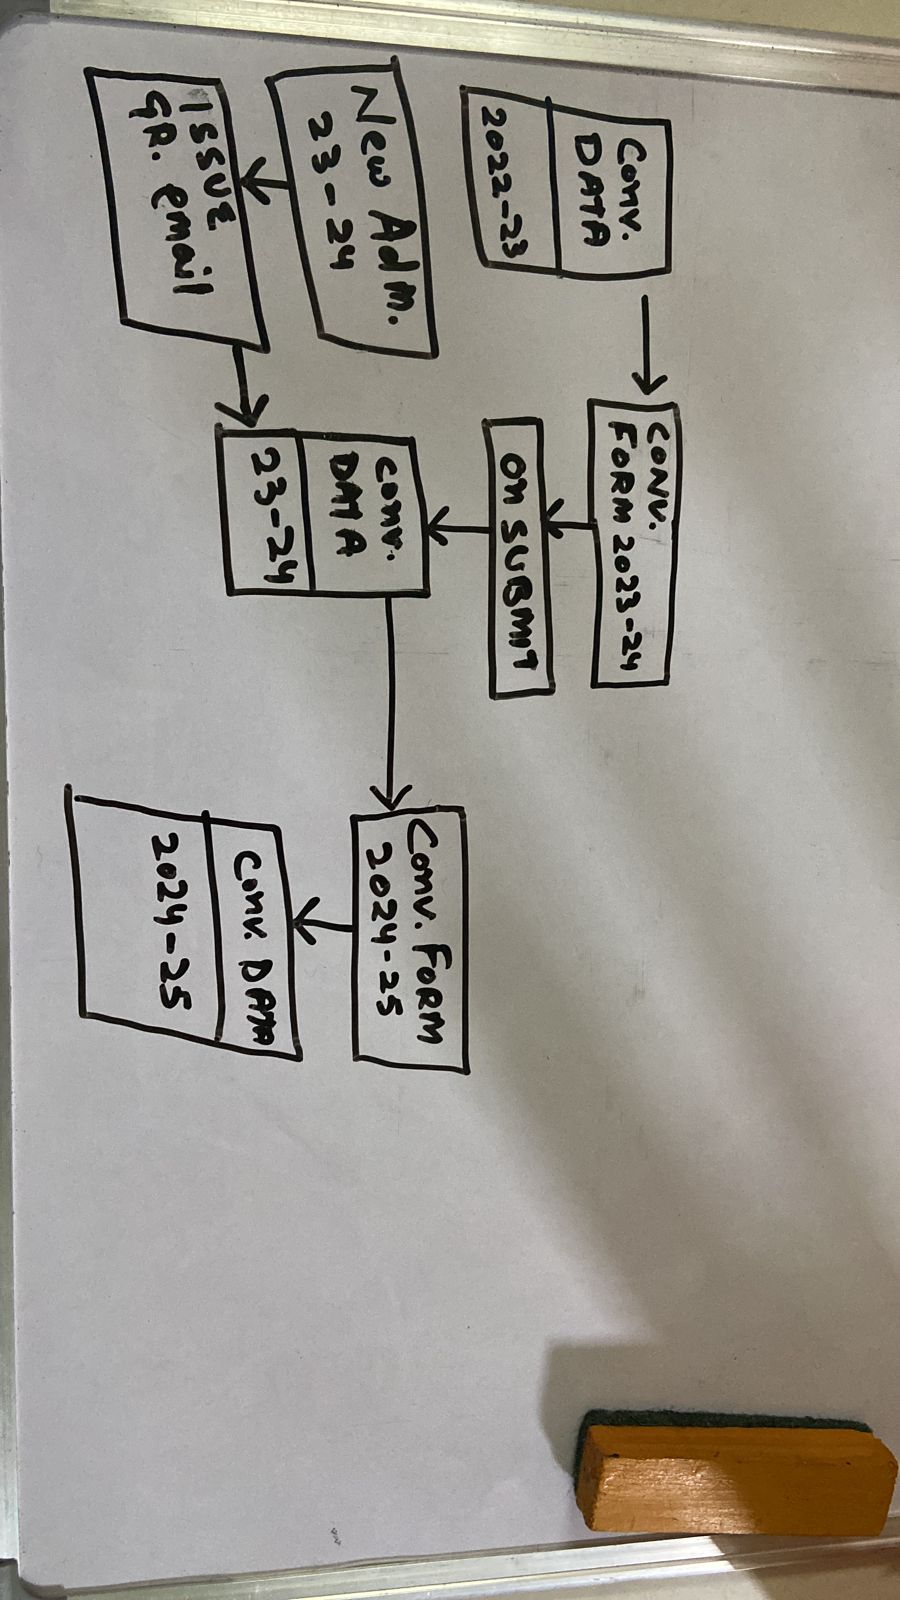 Conv.
DATA
2022-23
CONV.
FORM 2023-24
ON SUBMIT
New Adm.
23-24
ISSUE
GR. email
CONV.
DATA
23-24
Conv. FORM
2024-25
Conv. DATA
2024-25